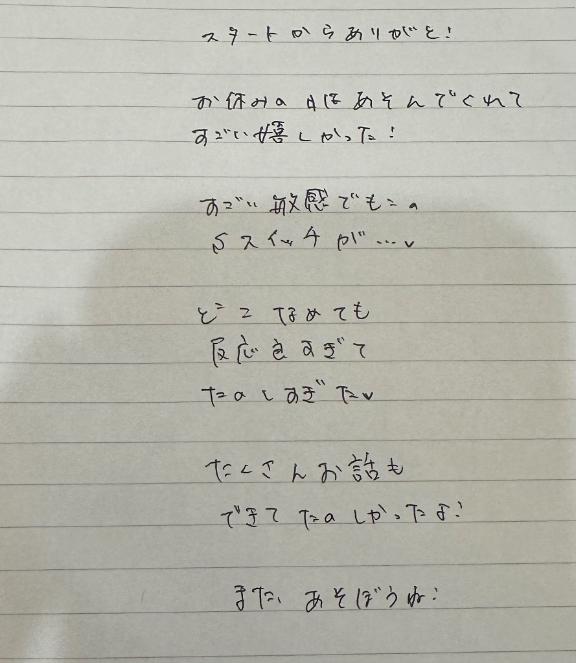 スタートからありがと!
お休みの日にあそんでくれて
すごい嬉しかった!
すごい敏感でもこの
Sスイッチが…
どこなめても
反応良すぎて
たのしすぎた
たくさんお話も
できてたのしかったよ!
また、あそぼうね!